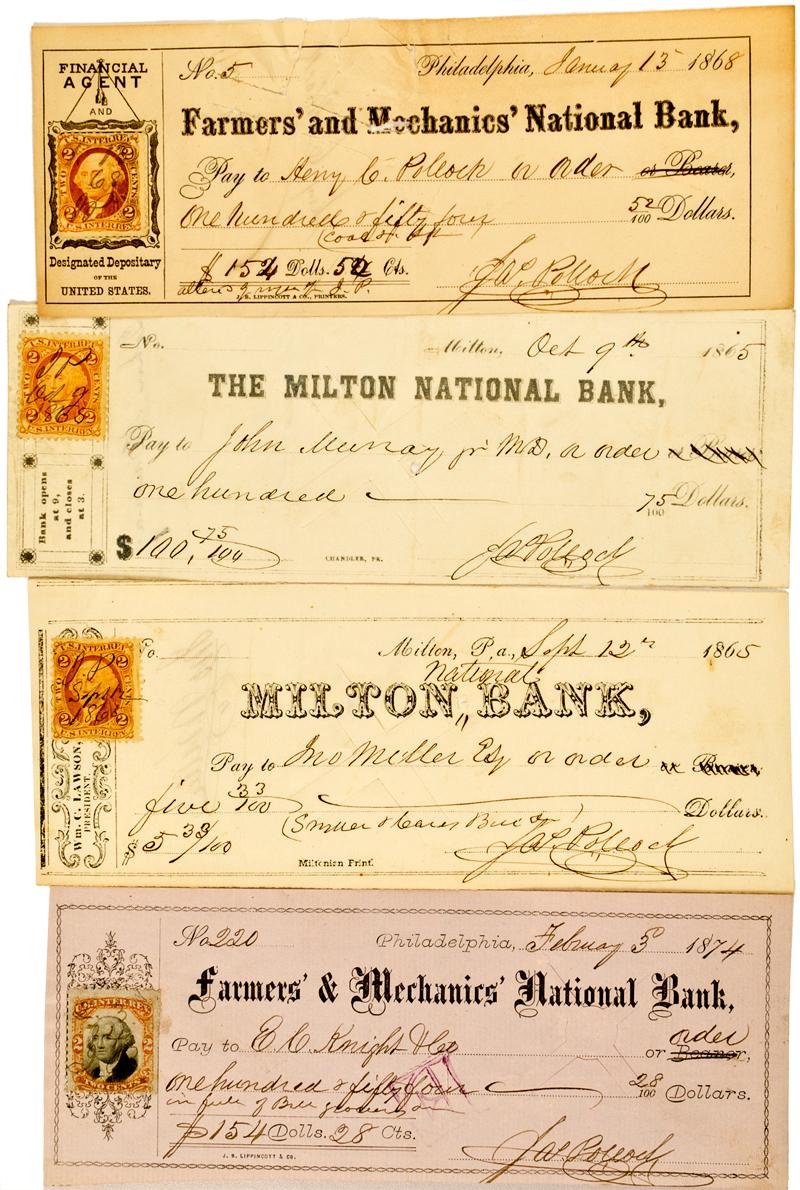 FINANCIAL
AGENT
AND
U.S. INTER. REV.
2 2
TWO CENTS
2 2
U.S. INTER. REV.
Designated Depositary
OF THE
UNITED STATES.
No. 5 Philadelphia, January 13 1868
Farmers' and Mechanics' National Bank,
Pay to Henry C. Pollock or order or Bearer,
One hundred & fifty four 52/100 Dollars.
$ 154 Dolls. 52 Cts. Jas Pollock
J. B. LIPPINCOTT & CO., PRINTERS.
U.S. INTER. REV.
2 2
J P
Oct 9
1865
Bank opens
at 9,
and closes
at 3.
No. Milton, Oct 9th 1865
THE MILTON NATIONAL BANK,
Pay to John Murray jr MD. or order
one hundred 75/100 Dollars.
$100, 75/100 Jas Pollock
CHANDLER, PR.
U.S. INTER. REV.
2 2
J P
Sept 12
1865
2 2
U.S. INTER. REV.
Wm. C. LAWSON,
PRESIDENT.
No. Milton, Pa., Sept 12th 1865
National
MILTON BANK,
Pay to Jno Miller Esq or order or Bearer,
five 33/100 Dollars.
$ 5 33/100 Jas Pollock
Miltonian Print.
No 220 Philadelphia, February 5 1874
Farmers' & Mechanics' National Bank,
order
Pay to E. C. Knight & Co or Bearer,
one hundred & fifty four 28/100 Dollars.
in full of Bill
$154 Dolls. 28 Cts. Jas Pollock
J. B. LIPPINCOTT & CO.
TWO CENTS